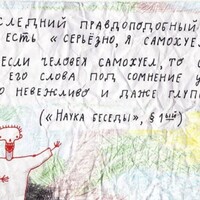 СЛЕДНИЙ ПРАВДОПОДОБНЫЙ
ЕСТЬ «СЕРЬЁЗНО, Я САМОХУЕЛ
ЕСЛИ ЧЕЛОВЕК САМОХУЕЛ, ТО С
ЕГО СЛОВА ПОД СОМНЕНИЕ У
О НЕВЕЖЛИВО И ДАЖЕ ГЛУП
(«НАУКА БЕСЕДЫ», §